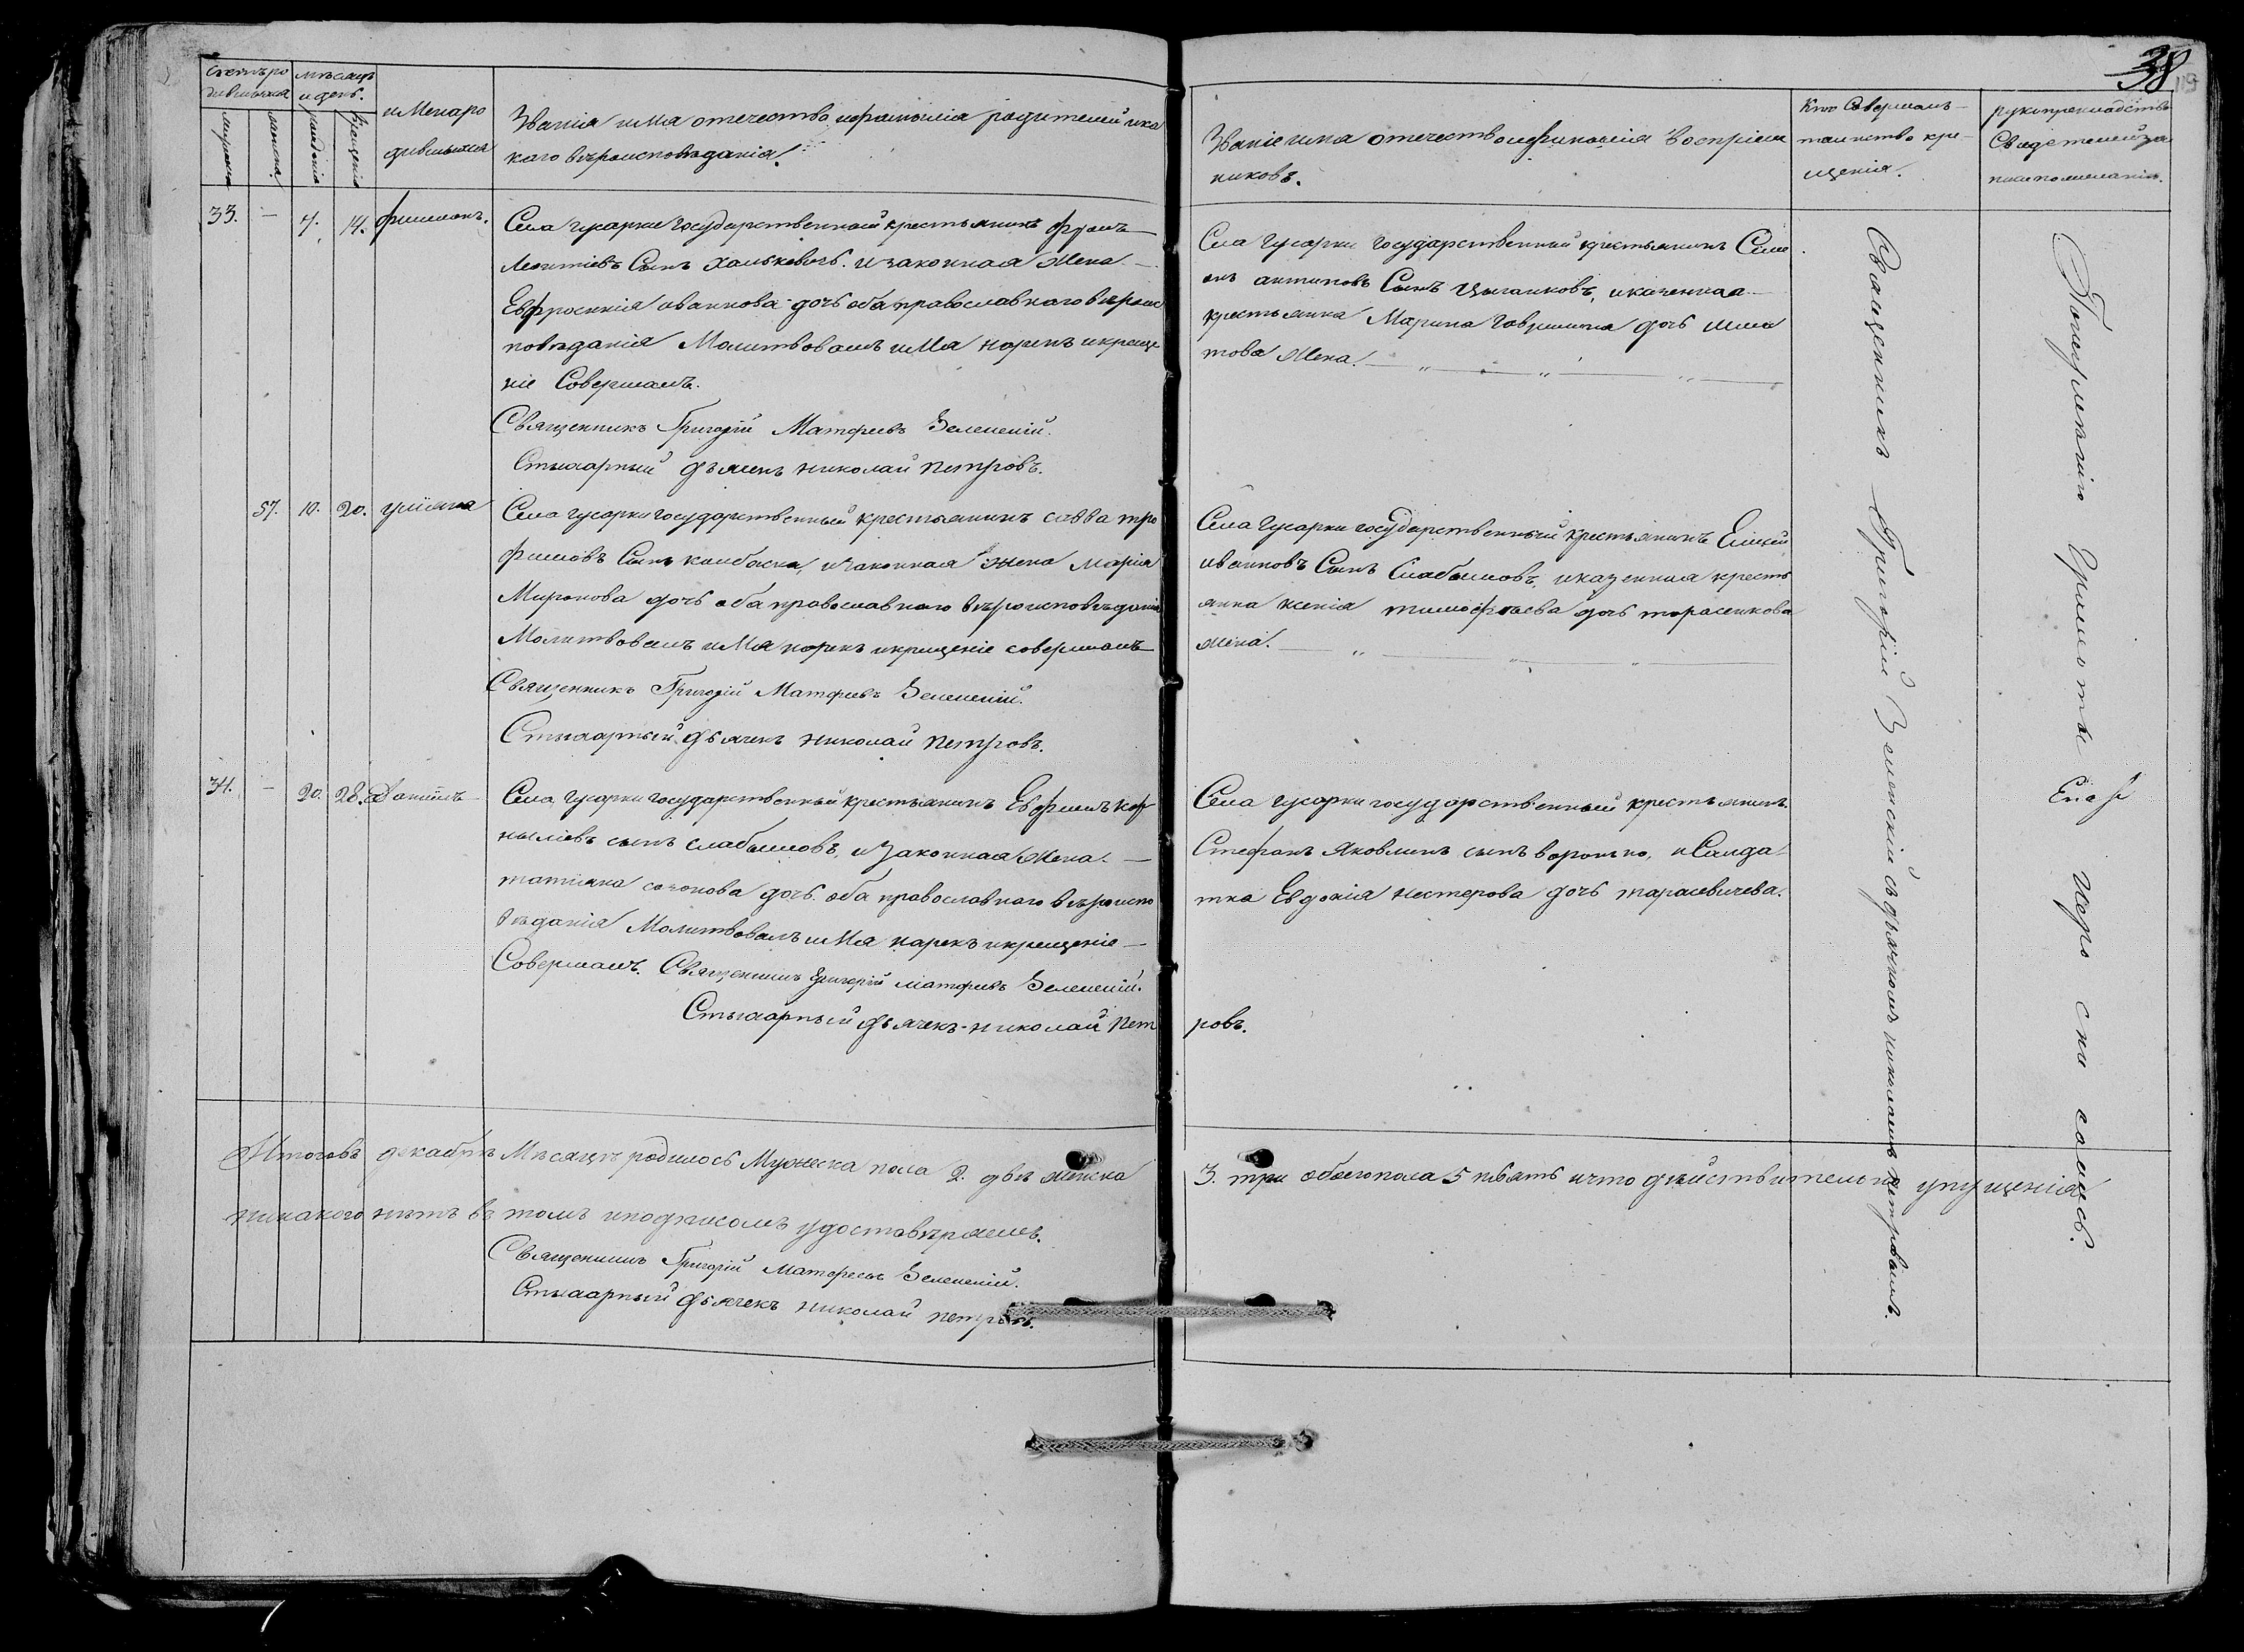 38
119
Счетъ ро
дившихся
мѣсяцъ
и день.
мужеска
женска
рожденія
крещенія
имена ро
дившихся
Званія имя отечество ифамилія родителей ика
каго вѣроисповѣданія.
Званіе имя отечество ифамилія воспріем
никовъ.
Кто Совершалъ
таинство кре-
щенія.
рукоприкладство
Свидетелей за
писи по желанію.
33. — 7. 14. филимонъ.
Села гусарки Государственный крестьянинъ
Леонтіевъ Сынъ хальковичъ. и законная Жена —
Евфросинія иванова дочь оба православнаго вѣроис
повѣданія Молитвовалъ имя нарекъ икреще
ніе Совершалъ.
Священникъ Григорій Матфеевъ Зеленскій.
Стихарный дьячекъ николай петровъ.
Села Гусарки государственный крестьянинъ Симе
онъ антиповъ Сынъ Цыганковъ, иказенная
крестьянка Марина Гаврилова дочь
това Жена.
57. 10. 20. уліяна
Села гусарки государственный крестьянинъ савва тро
фимовъ Сынъ канбаска, изаконная жена марія
Миронова дочь оба православнаго вѣроисповѣданія
Молитвовалъ имя нарекъ икрещеніе совершалъ
Священникъ Григорій Матфеевъ Зеленскій.
Стихарный дьячекъ николай петровъ.
Села Гусарки государственный крестьянинъ Елисей
ивановъ Сынъ Слабышовъ, иказенная кресть
янка ксенія тимофѣева дочь тарасенкова
жена.
34. — 20. 28. Даніилъ
Села гусарки государственный крестьянинъ Евфимъ кор
ныліевъ сынъ слабышовъ, и Законная Жена. —
татіяна созонова дочь. оба православнаго вѣроиспо
вѣданія Молитвовалъ имя нарекъ икрещеніе —
Совершалъ. Священникъ Григорій матфеевъ Зеленскій.
Стихарный дьячекъ николай пет
ровъ.
Села гусарки государственный крестьянинъ
Стефанъ Яковлевъ сынъ ворошко, и Салда
тка Евдокія нестерова дочь тарасевичева.
Священникъ Григорій Зеленскій съ дьячкомъ николаемъ петровымъ.
Итого въ декабрѣ Мѣсяцѣ родилось Мужеска пола 2. два женска
3. три обоего пола 5 пѣять ичто дѣйствительно упущенія
никакого нѣтъ въ томъ иподписомъ удостовѣряемъ.
Священникъ Григорій Матфеевъ Зеленскій.
Стихарный дьячекъ николай петровъ.